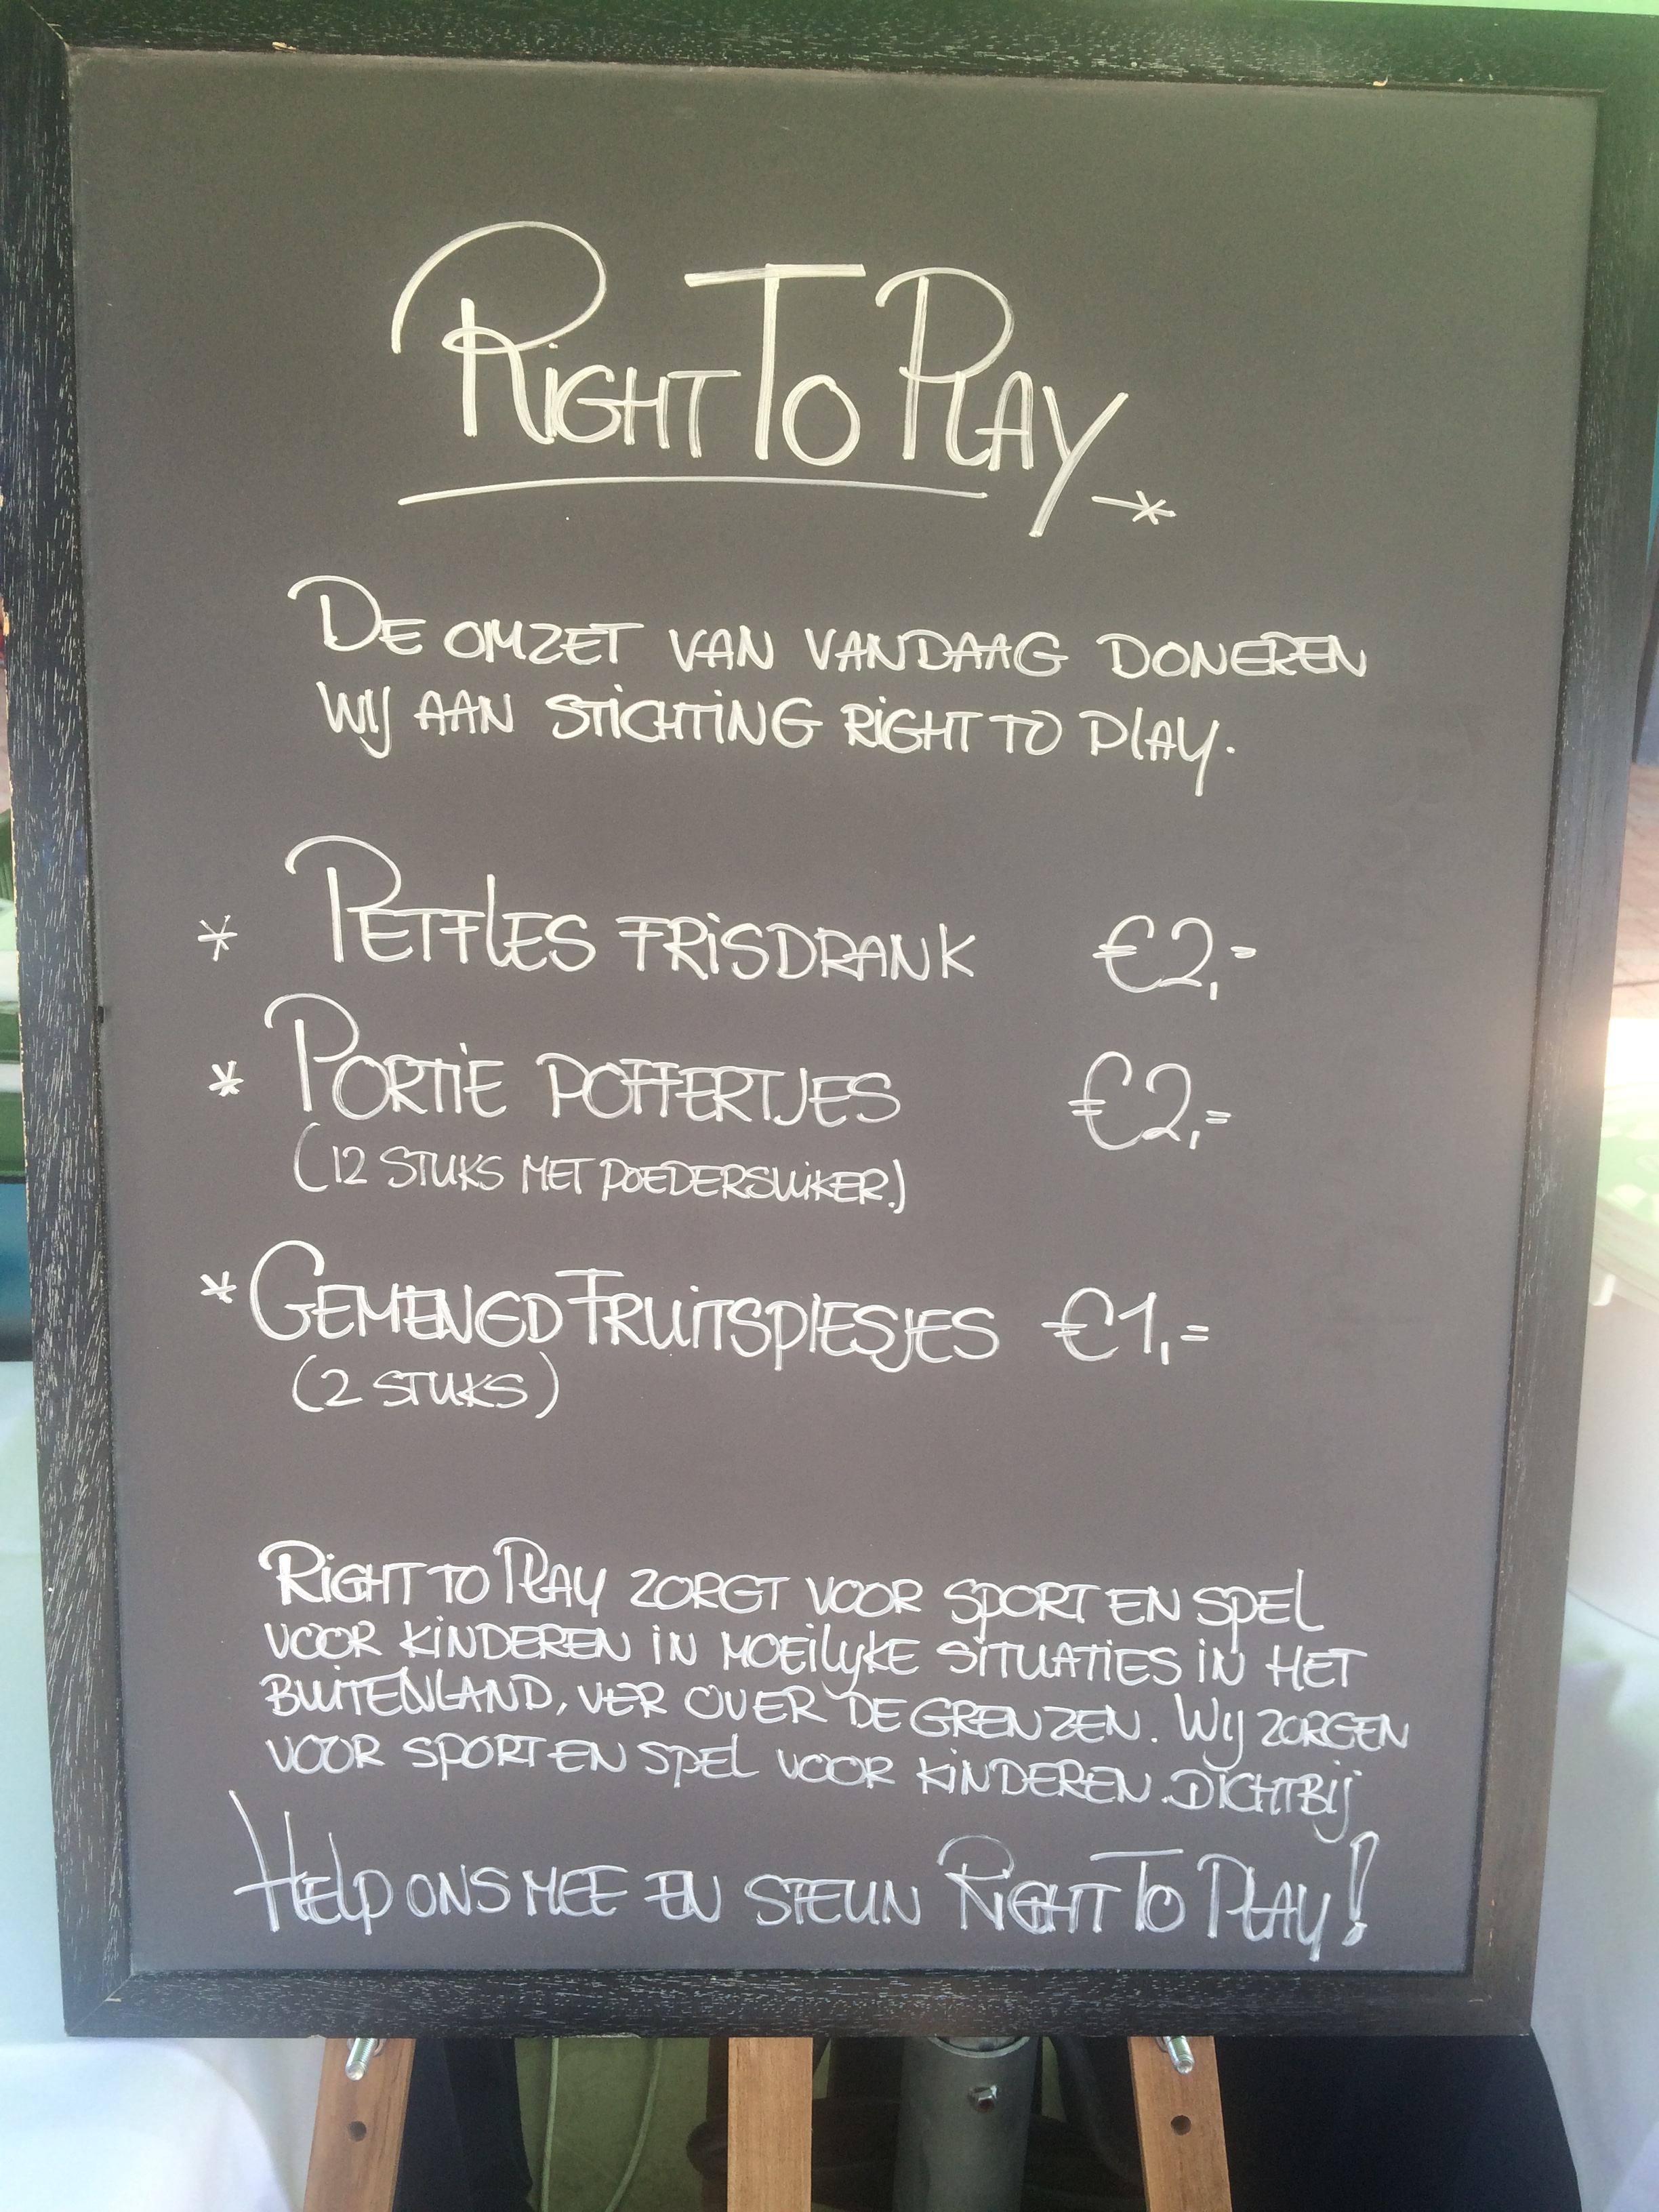 Right To Play
De omzet van vandaag doneren
wij aan stichting Right to Play.
* Petfles frisdrank €2,-
* Portie poffertjes €2,=
(12 stuks met poedersuiker.)
* Gemengd Fruitspiesjes €1,=
(2 stuks)
Right to Play zorgt voor sport en spel
voor kinderen in moeilijke situaties in het
buitenland, ver over de grenzen. Wij zorgen
voor sport en spel voor kinderen dichtbij
Help ons mee en steun Right To Play!